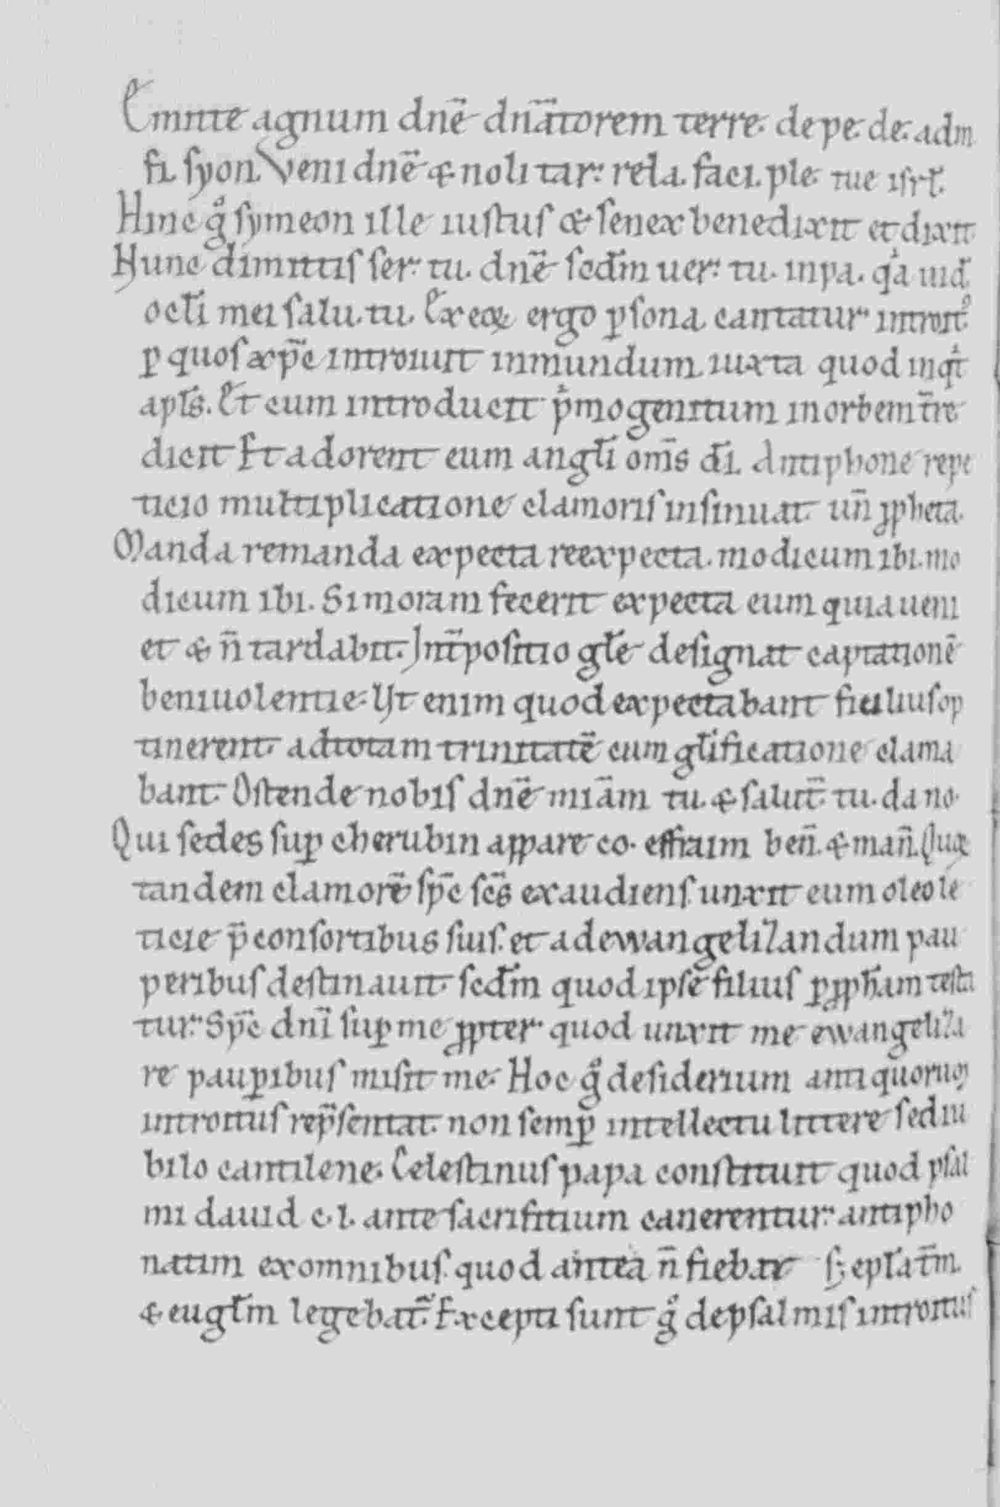 Emitte agnum dnē dnāatorem terre. de pe. de. ad m.
fi. syon. Veni dnē & noli tar: rela. faci. ple. tue isrl.
Hinc gͦ symeon ille iustus & senex benedixit et dixit.
Hunc dimittis ser: tu. dnē scdm̄ uer: tu. in pa. qͣa uid̄.
ocl̄i mei salu. tu. Ex eoꝝ ergo ꝑsona cantatur introitꝰ
ꝑ quos xp̄c introiuit in mundum. iuxta quod inqͥt
apl̄s. Et cum introducit pͥmogenitum in orbem tr̄e
dicit Et adorent eum angl̄i om̄s dī. Antiphone repe
ticio multiplicatione clamoris insinuat. un̄ ꝓpheta.
Manda remanda expecta reexpecta. modicum ibi. mo
dicum ibi. Si moram fecerit expecta eum quia ueni
et & n̄ tardabit. Int̄positio gl̄e designat captationē
beniuolentie. Vt enim quod expectabant fi uilius op
tinerent. ad totam trinitatē cum gl̄ificatione clama
bant. Ostende nobis dnē miām tu. & salut̄. tu. da no.
Qui sedes suꝑ cherubin appare co. effraim ben̄. & man̄. Quoꝝ
tandem clamorē sp̄c sc̄s exaudiens. unxit eum oleo le
ticie p̄ consortibus suis. et ad ewangelizandum pau
peribus destinauit. scdm̄ quod ipse filius ꝑ ꝓph̄am testa
tur: Sp̄c dnī suꝑ me ꝓpter quod unxit me ewangeliza
re pauꝑibus misit me. Hoc gͦ desiderium antiquorum
introitus rep̄sentat. non semꝑ intellectu littere sed iu
bilo cantilene. Celestinus papa constituit quod psal
mi dauid c.l. ante sacrifitium canerentur: antipho
natim ex omnibus. quod antea n̄ fiebat sꝫ epl̄a tm̄.
& eugl̄m legebat᷑. Excepti sunt gͦ de psalmis introitus